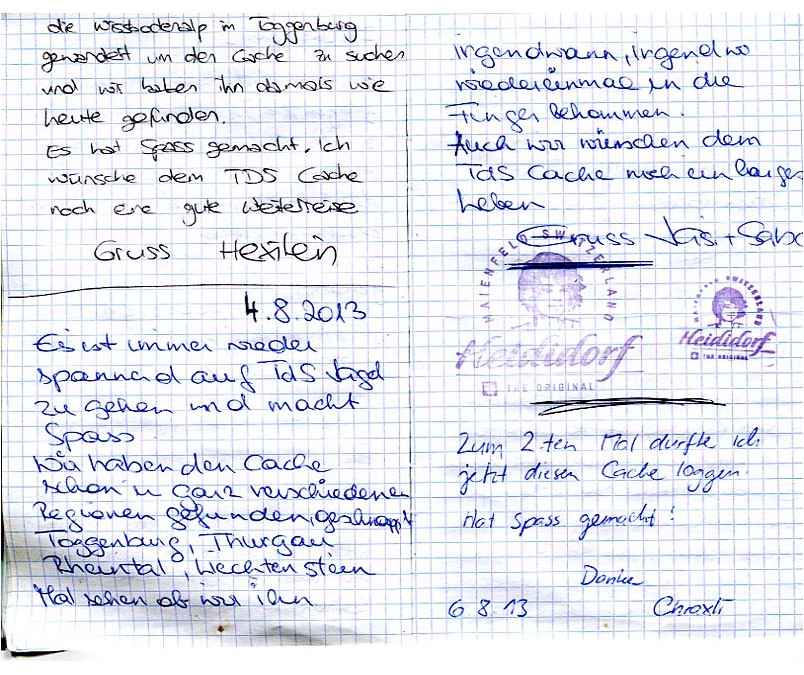 die Wissbodenalp im Toggenburg
gewandert um den Cache zu suchen
und wir haben ihn damals wie
heute gefunden.
Es hat Spass gemacht. Ich
wünsche dem TDS Cache
noch eine gute Weiterreise
Gruss Hexilein
4.8.2013
Es ist immer wieder
spannend auf TdS Jagd
zu gehen und macht
Spass
Wir haben den Cache
schon in ganz verschiedenen
Regionen gefunden, geschnappt
Toggenburg, Thurgau
Rheintal, Liechtenstein
Mal sehen ob wir ihn
irgendwann, irgendwo
wiedereinmal in die
Finger bekommen.
Auch wir wünschen dem
TdS Cache noch ein langes
Leben
Gruss
MAIENFELD SWITZERLAND
Heididorf
THE ORIGINAL
MAIENFELD SWITZERLAND
Heididorf
THE ORIGINAL
Zum 2.ten Mal durfte ich
jetzt diesen Cache loggen.
Hat Spass gemacht!
Danke
6.8.13 Chroxli